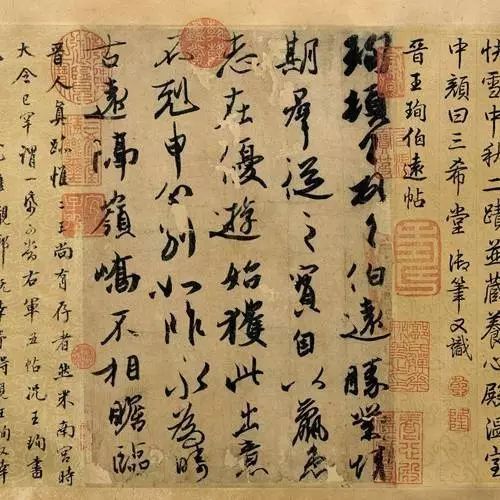 快雪中秋二蹟並藏養心殿溫室
中顏曰三希堂御筆又識
晉王珣伯遠帖
珣頓首頓首伯遠勝業情
期羣從之寶自以羸患
志在優遊始獲此出意
不剋申分別如昨永為疇
古遠隔嶺嶠不相瞻臨
晉人真跡惟二王尚有存者然米南宮時
大令已罕謂一紙可當右軍五帖況王珣書